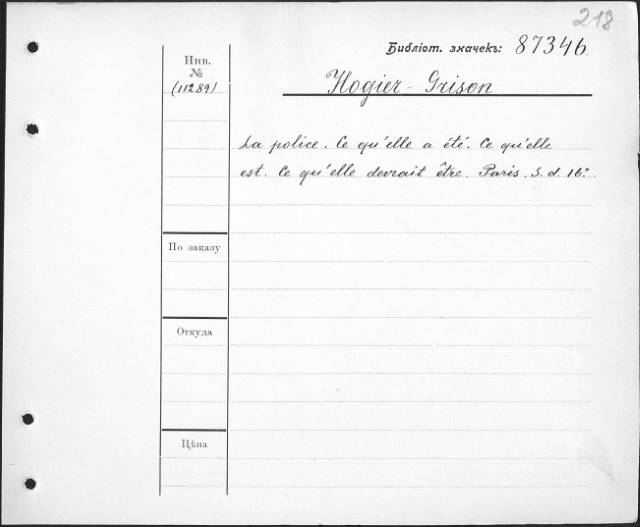 218
Библіот. значекъ: 87346
Инв.
№
(11289)
Hogier-Grison
La police. Ce qu'elle a été. Ce qu'elle
est. Ce qu'elle devrait être. Paris. S. d. 16º.
По заказу
Откуда
Цѣна